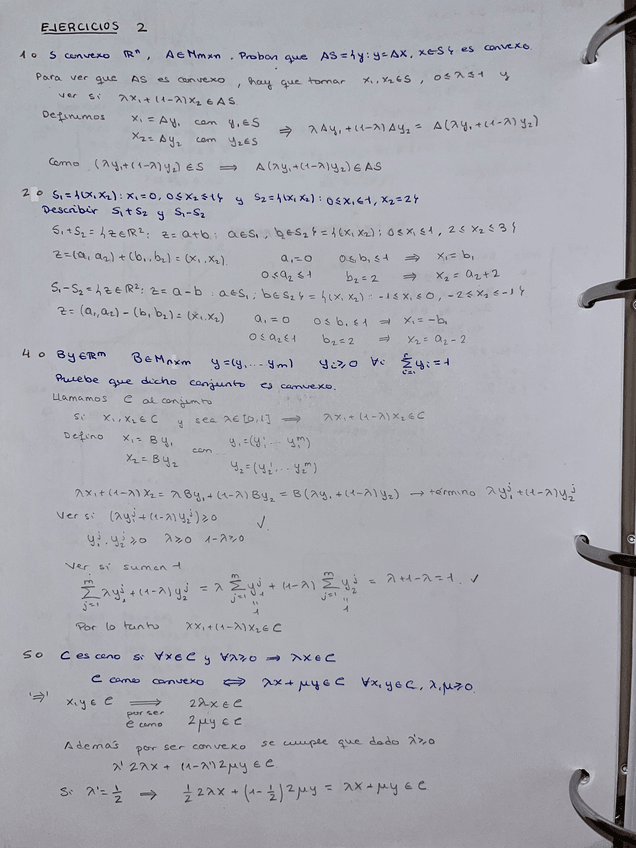 EJERCICIOS 2
1o S convexo ℝⁿ, A∈Mmxn. Probar que AS={y: y=AX, x∈S} es convexo.
Para ver que AS es convexo, hay que tomar x₁,x₂∈S, 0≤λ≤1 y
ver si λx₁+(1-λ)x₂∈AS
Definimos x₁=Ay₁ con y₁∈S
x₂=Ay₂ con y₂∈S ⇒ λAy₁+(1-λ)Ay₂ = A(λy₁+(1-λ)y₂)
Como (λy₁+(1-λ)y₂)∈S ⟹ A(λy₁+(1-λ)y₂)∈AS
2o S₁={(x₁,x₂): x₁=0, 0≤x₂≤1} y S₂={(x₁,x₂): 0≤x₁≤1, x₂=2}
Describir S₁+S₂ y S₁-S₂
S₁+S₂={z∈ℝ²: z=a+b: a∈S₁, b∈S₂}={(x₁,x₂): 0≤x₁≤1, 2≤x₂≤3}
z=(a₁,a₂)+(b₁,b₂)=(x₁,x₂) a₁=0 0≤b₁≤1 ⇒ x₁=b₁
0≤a₂≤1 b₂=2 ⇒ x₂=a₂+2
S₁-S₂={z∈ℝ²: z=a-b: a∈S₁, b∈S₂}={(x₁,x₂): -1≤x₁≤0, -2≤x₂≤-1}
z=(a₁,a₂)-(b₁,b₂)=(x₁,x₂) a₁=0 0≤b₁≤1 ⇒ x₁=-b₁
0≤a₂≤1 b₂=2 ⇒ x₂=a₂-2
4o By∈ℝᵐ B∈Mnxm y=(y₁...ym) yi≥0 ∀i Σyi=1
Pruebe que dicho conjunto es convexo.
Llamamos C al conjunto
Si x₁,x₂∈C y sea λ∈[0,1] ⟹ λx₁+(1-λ)x₂∈C
Defino x₁=By₁ con y₁=(y₁¹...y₁ᵐ)
x₂=By₂ y₂=(y₂¹...y₂ᵐ)
λx₁+(1-λ)x₂=λBy₁+(1-λ)By₂=B(λy₁+(1-λ)y₂) → término λy₁ʲ+(1-λ)y₂ʲ
Ver si (λy₁ʲ+(1-λ)y₂ʲ)≥0 ✓
y₁ʲ, y₂ʲ≥0 λ≥0 1-λ≥0
Ver si suman 1
Σⱼ₌₁ᵐ λy₁ʲ+(1-λ)y₂ʲ = λ Σⱼ₌₁ᵐ y₁ʲ + (1-λ) Σⱼ₌₁ᵐ y₂ʲ = λ+1-λ=1. ✓
" "
1 1
Por lo tanto λx₁+(1-λ)x₂∈C
5o C es cono si ∀x∈C y ∀λ≥0 ⇒ λx∈C
C cono convexo ⟺ λx+μy∈C ∀x,y∈C, λ,μ≥0.
'⇒' x,y∈C ⟹ 2λx∈C
por ser
C cono 2μy∈C
Además por ser convexo se cumple que dado λ'≥0
λ'2λx + (1-λ')2μy∈C
Si λ'=1/2 ⟹ 1/2 2λx + (1-1/2)2μy = λx+μy∈C